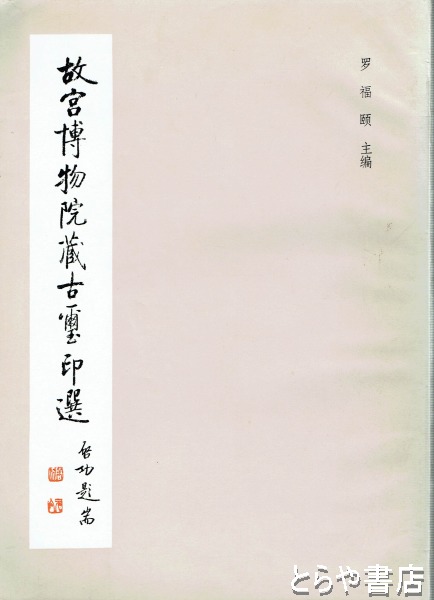 罗福颐 主编
故宫博物院藏古璽印選
启功题耑
とらや書店